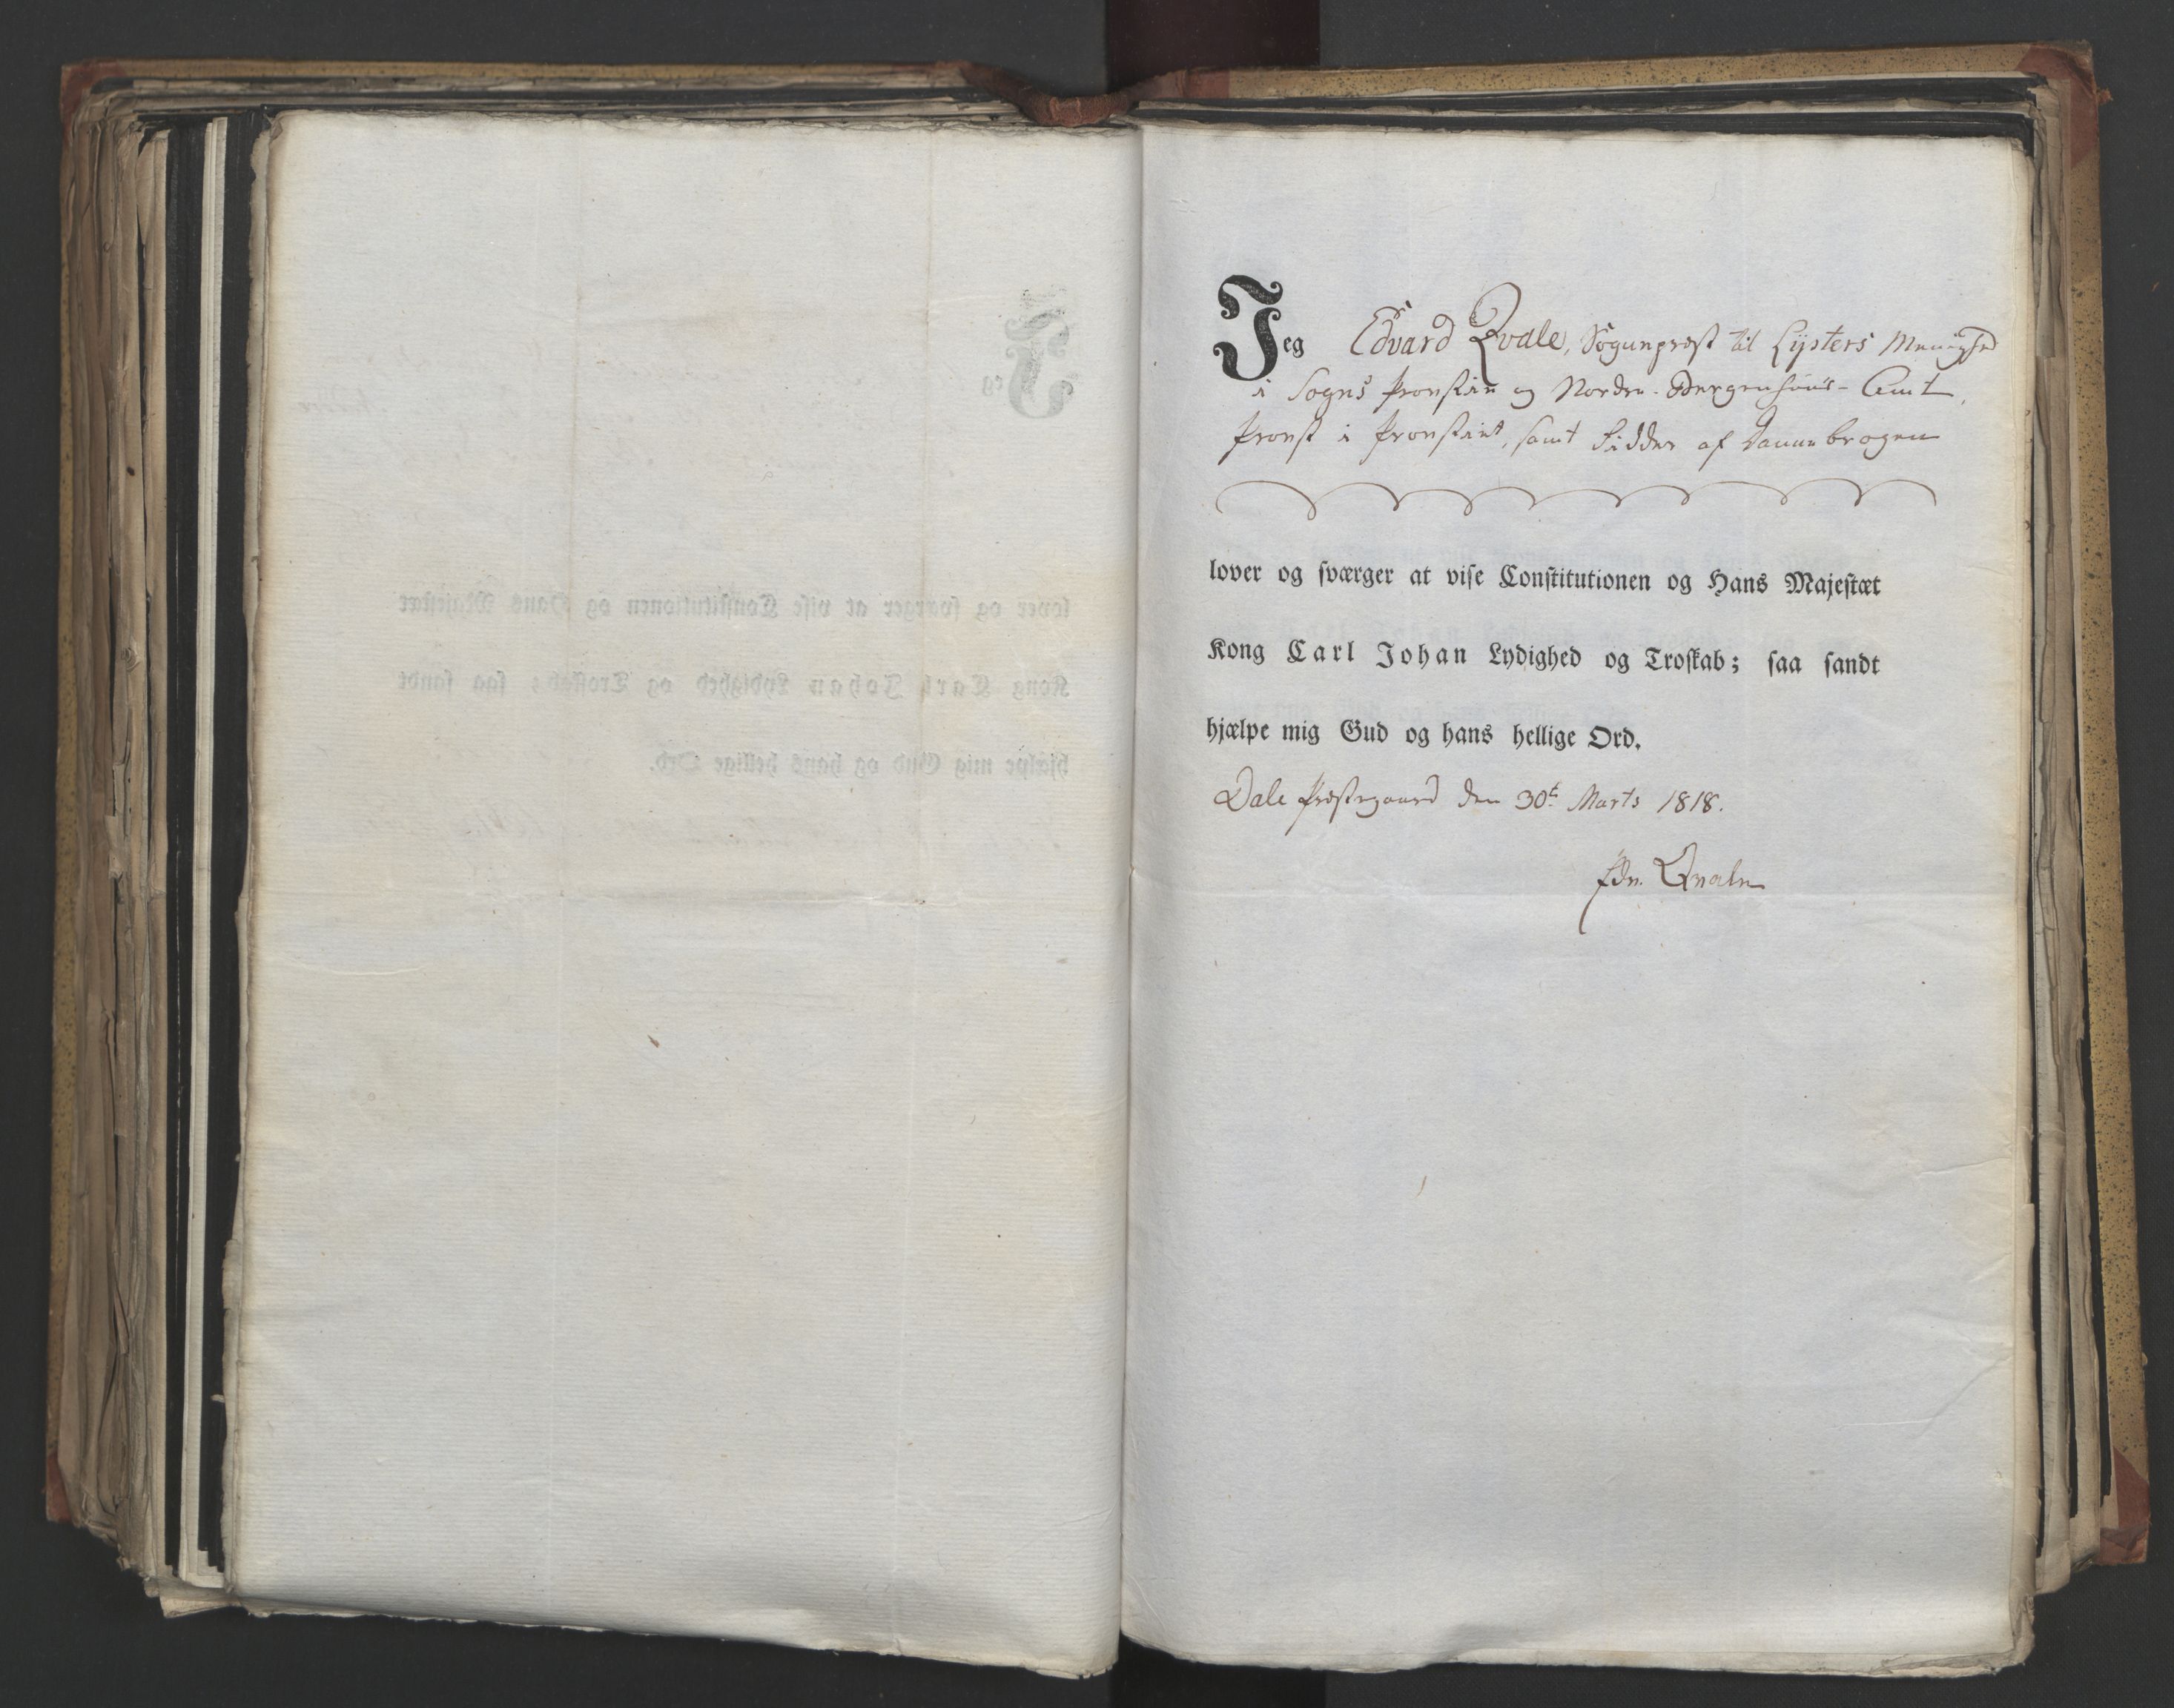 Jeg Edvard Qvale, Sogneprest til Lysters Menighed
i Sogns Provstie og Nordre-Bergenhuus-Amt,
Provst i Provstiet, samt Ridder af Dannebrogen
lover og sværger at vise Constitutionen og Hans Majestæt
Kong Carl Johan Lydighed og Troskab; saa sandt
hjælpe mig Gud og hans hellige Ord.
Dale Præstegaard den 30t Marts 1818.
Edv. Qvale